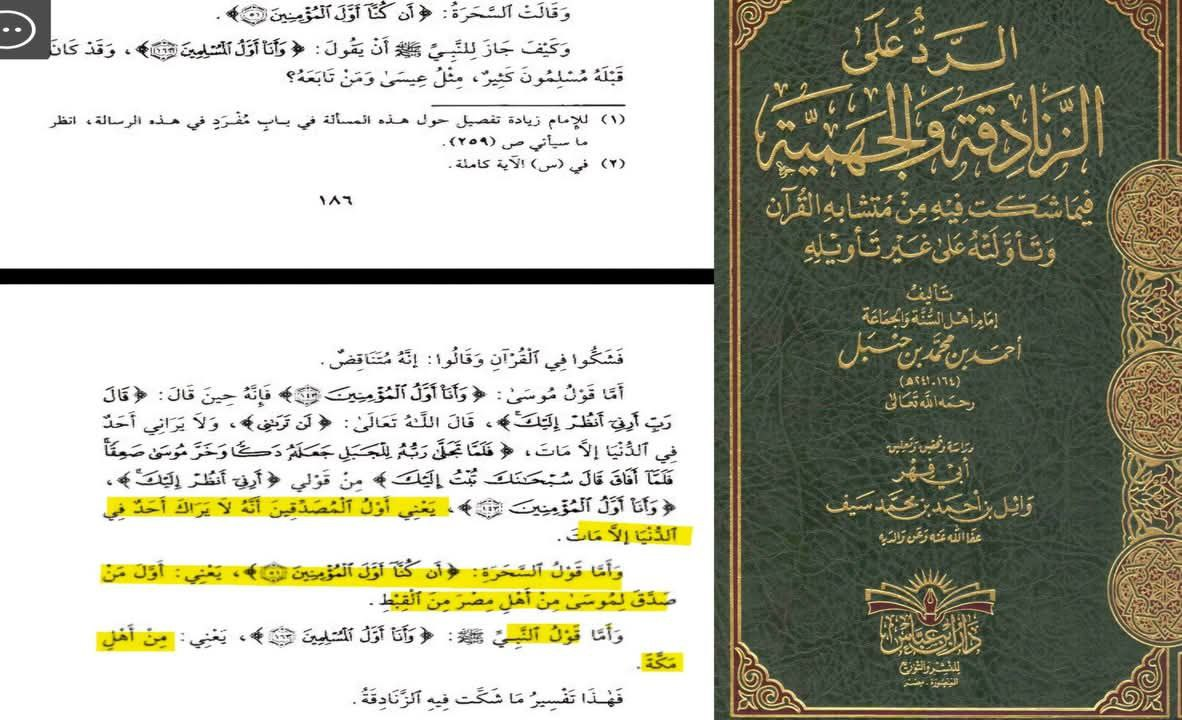 وَقَالَتْ ٱلسَّحَرَةُ: ﴿ أَن كُنَّآ أَوَّلَ ٱلْمُؤْمِنِينَ ﴿٥١﴾ ﴾.
وَكَيْفَ جَازَ لِلنَّبِيِّ ﷺ أَنْ يَقُولَ: ﴿ وَأَنَا۠ أَوَّلُ ٱلْمُسْلِمِينَ ﴿١٦٣﴾ ﴾، وَقَدْ كَانَ
قَبْلَهُ مُسْلِمُونَ كَثِيرٌ، مِثْلُ عِيسَى وَمَنْ تَابَعَهُ؟
(١) للإمام زيادة تفصيل حول هذه المسألة في باب مُفْرَدٍ في هذه الرسالة، انظر
ما سيأتي ص (٢٥٩).
(٢) في (س) الآية كاملة.
١٨٦
فَشَكُّوا فِي ٱلْقُرْآنِ وَقَالُوا: إِنَّهُ مُتَنَاقِضٌ.
أَمَّا قَوْلُ مُوسَىٰ: ﴿ وَأَنَا۠ أَوَّلُ ٱلْمُؤْمِنِينَ ﴿١٤٣﴾ ﴾ فَإِنَّهُ حِينَ قَالَ: ﴿ قَالَ
رَبِّ أَرِنِىٓ أَنظُرْ إِلَيْكَ ﴾، قَالَ ٱللَّهُ تَعَالَىٰ: ﴿ لَن تَرَىٰنِى ﴾، وَلَا يَرَانِي أَحَدٌ
فِي ٱلدُّنْيَا إِلَّا مَاتَ، ﴿ فَلَمَّا تَجَلَّىٰ رَبُّهُۥ لِلْجَبَلِ جَعَلَهُۥ دَكًّا وَخَرَّ مُوسَىٰ صَعِقًا
فَلَمَّآ أَفَاقَ قَالَ سُبْحَٰنَكَ تُبْتُ إِلَيْكَ ﴾ مِنْ قَوْلِي ﴿ أَرِنِىٓ أَنظُرْ إِلَيْكَ ﴾،
﴿ وَأَنَا۠ أَوَّلُ ٱلْمُؤْمِنِينَ ﴿١٤٣﴾ ﴾، يَعْنِي أَوَّلُ ٱلْمُصَدِّقِينَ أَنَّهُ لَا يَرَاكَ أَحَدٌ فِي
ٱلدُّنْيَا إِلَّا مَاتَ.
وَأَمَّا قَوْلُ ٱلسَّحَرَةِ: ﴿ أَن كُنَّآ أَوَّلَ ٱلْمُؤْمِنِينَ ﴿٥١﴾ ﴾، يَعْنِي: أَوَّلَ مَنْ
صَدَّقَ لِمُوسَىٰ مِنْ أَهْلِ مِصْرَ مِنَ ٱلْقِبْطِ.
وَأَمَّا قَوْلُ ٱلنَّبِيِّ ﷺ: ﴿ وَأَنَا۠ أَوَّلُ ٱلْمُسْلِمِينَ ﴿١٦٣﴾ ﴾، يَعْنِي: مِنْ أَهْلِ
مَكَّةَ.
فَهَٰذَا تَفْسِيرُ مَا شَكَّت فِيهِ ٱلزَّنَادِقَةُ.
الرَّدُّ عَلَى
الزَّنَادِقَةِ وَالجَهْمِيَّةِ
فِيمَا شَكَّت فِيهِ مِنْ مُتَشَابِهِ القُرْآنِ
وَتَأَوَّلَتْهُ عَلَى غَيْرِ تَأْوِيْلِهِ
تَأليفُ
إمَام أهل السُّنَّة وَالجَمَاعَة
أحمد بن محمَّد بن حنبل
(١٦٤-٢٤١هـ)
رحمه الله تعالى
دراسة وتحقيق وتعليق
أبي فهر
وَائل بن أحمد بن محمّد سَيف
عفا الله عنه وعن والديه
دار ابن عباس
للنشر والتوزيع
المنصورة - مصر